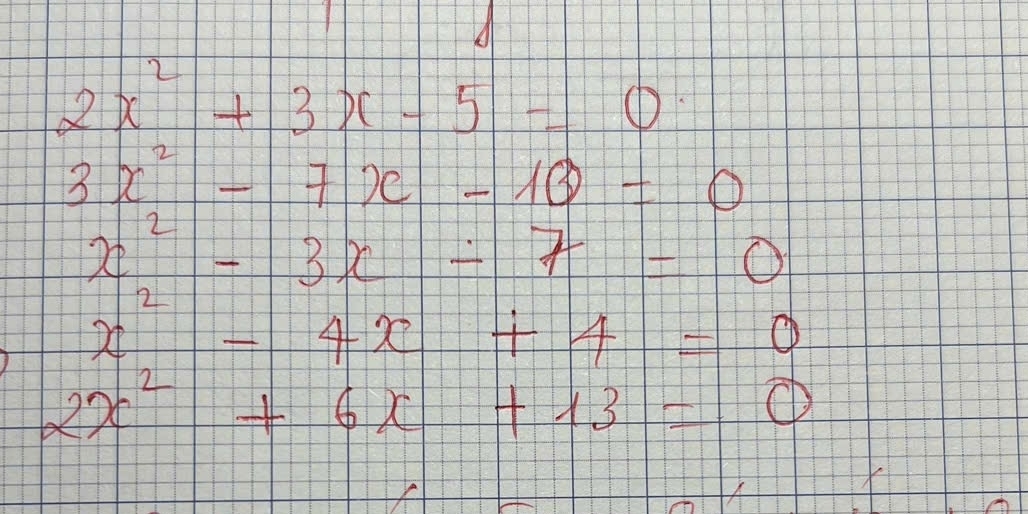 2x² + 3x - 5 = 0
3x² - 7x - 10 = 0
x² - 3x - 7 = 0
x² - 4x + 4 = 0
2x² + 6x + 13 = 0